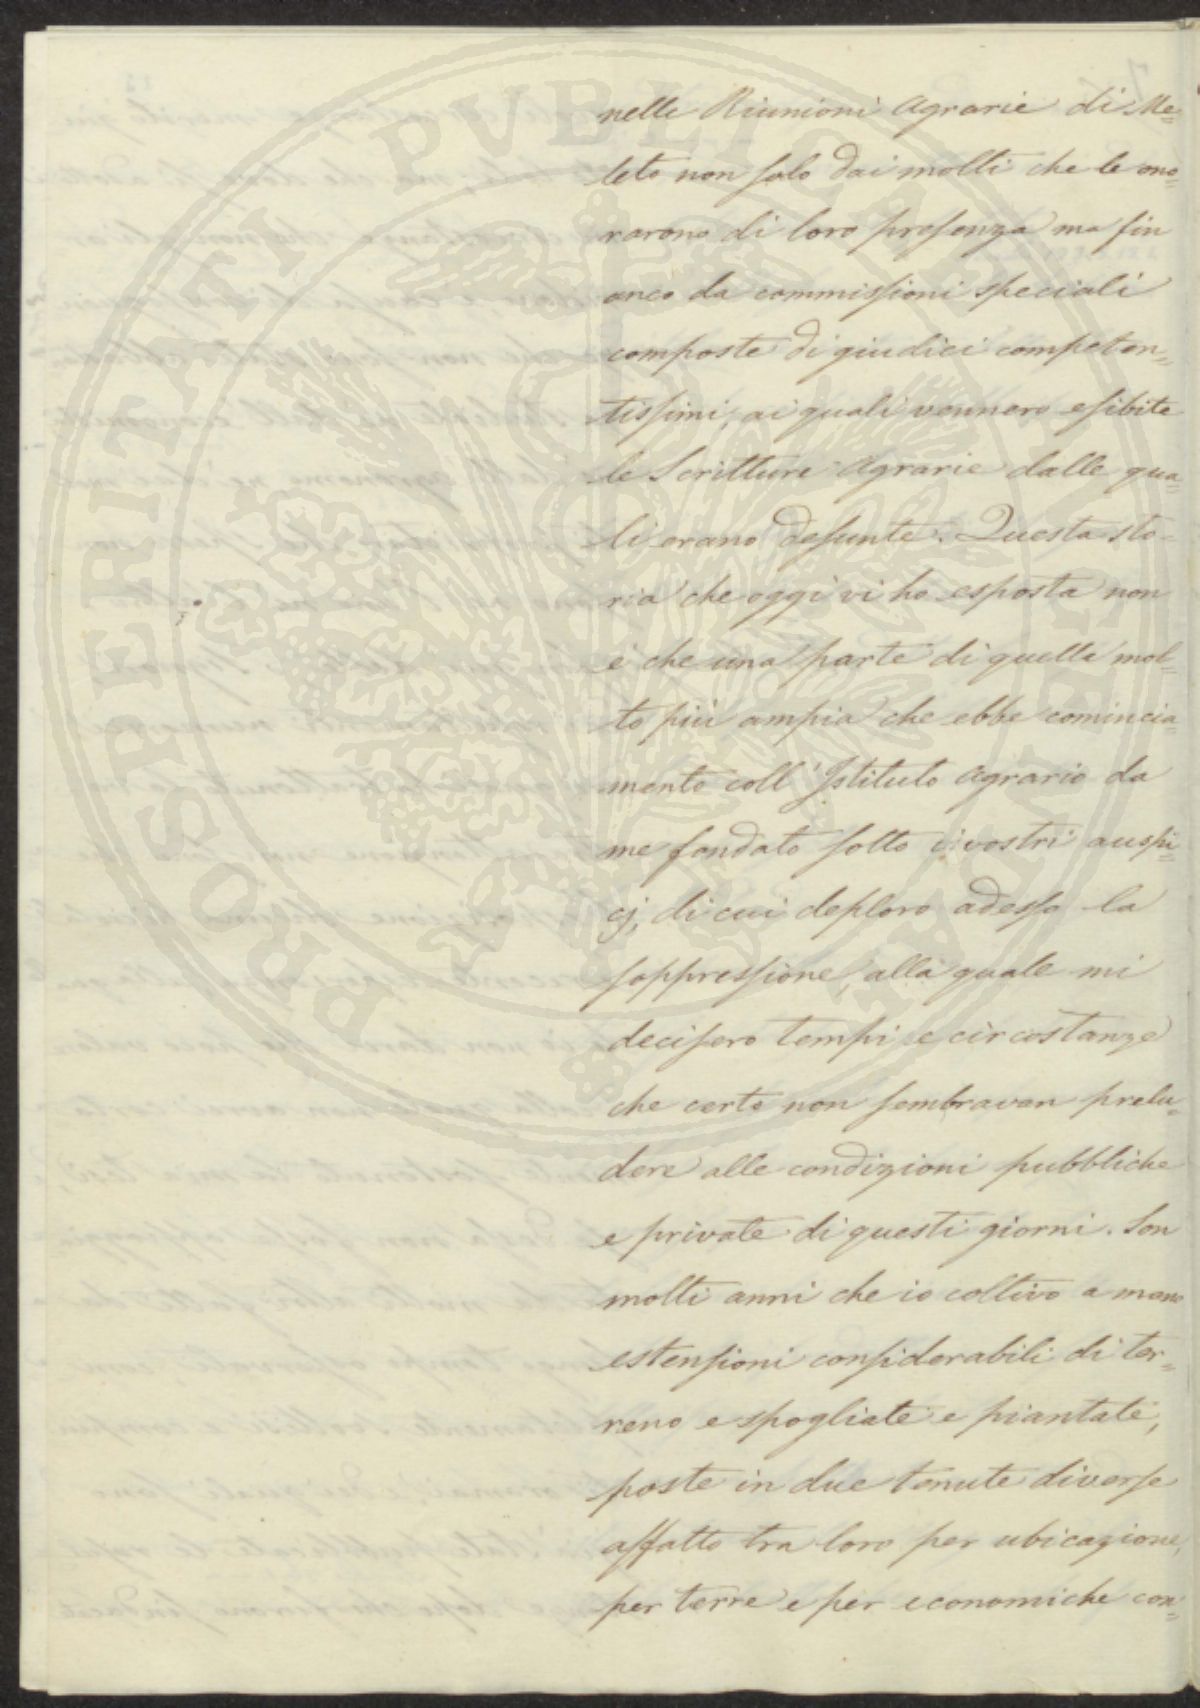 nelle Riunioni Agrarie di Me=
leto non solo dai molti che le ono=
rarono di loro presenza ma fin
anco da commissioni speciali
composte di giudici competen=
tissimi, ai quali vennero esibite
le Scritture Agrarie dalle qua=
li erano desunte. Questa sto=
ria che oggi vi ho esposta non
è che una parte di quella mol=
to più ampia che ebbe comincia
mento coll'Istituto Agrario da
me fondato sotto i vostri auspi=
cj, di cui deploro adesso la
soppressione, alla quale mi
decisero tempi e circostanze
che certo non sembravan prelu=
dere alle condizioni pubbliche
e private di questi giorni. Son
molti anni che io coltivo a mano
estensioni considerabili di ter=
reno e spogliate e piantate,
poste in due tenute diverse
affatto tra loro per ubicazione,
per terre e per economiche con=
PROSPERITATI PVBLICAE